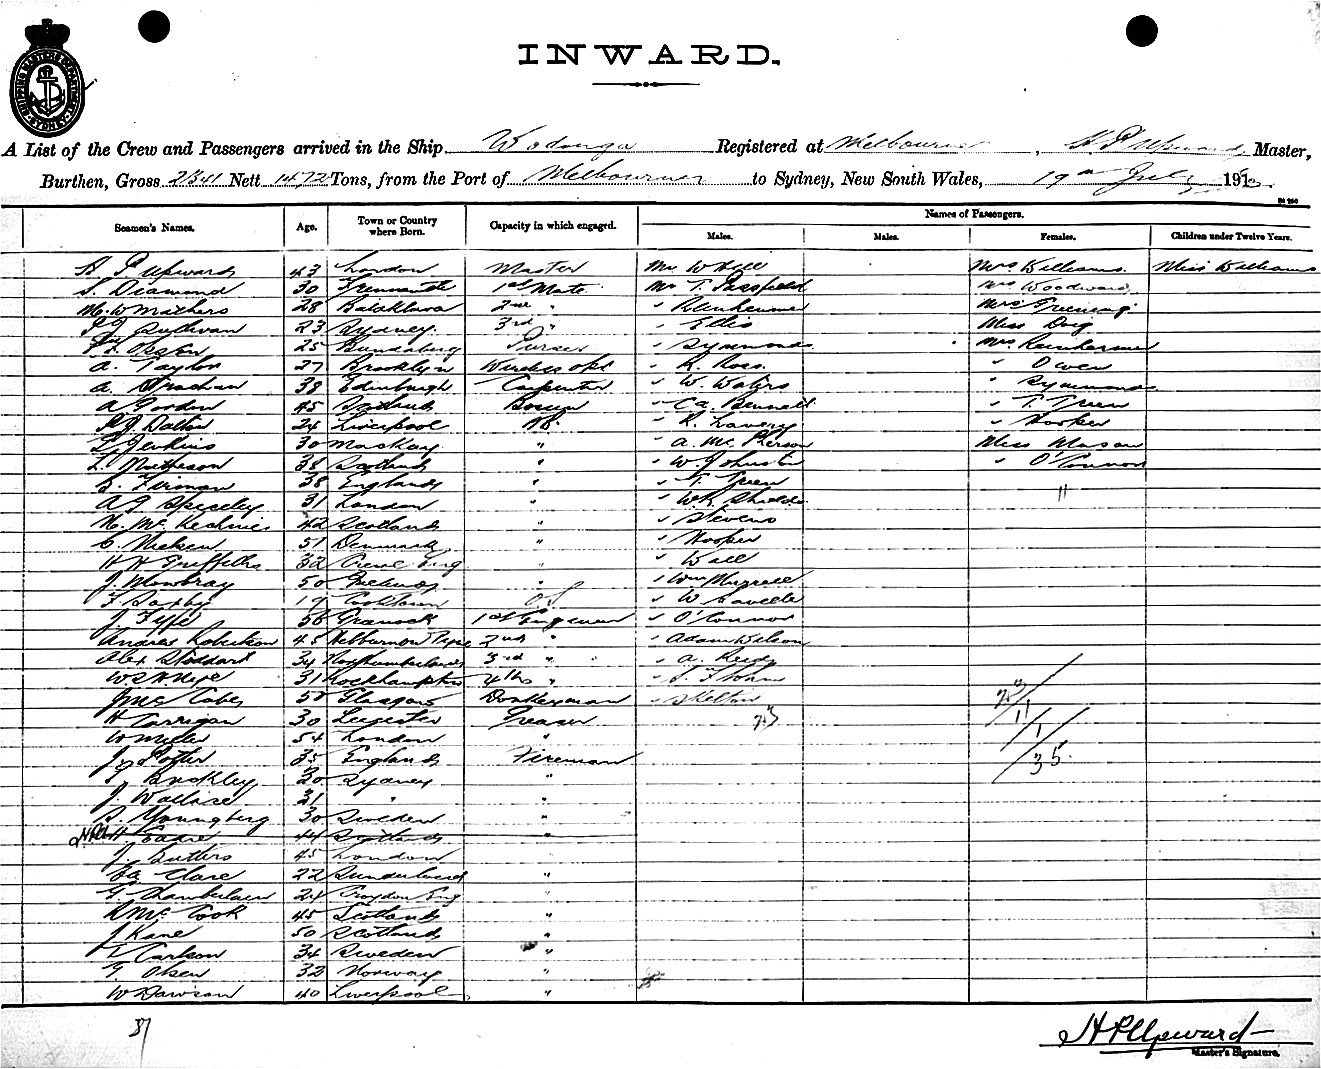 INWARD.
SHIPPING MASTERS DEPARTMENT SYDNEY
A List of the Crew and Passengers arrived in the Ship Wodonga Registered at Melbourne, H P Upward Master,
Burthen, Gross 2341 Nett 1472 Tons, from the Port of Melbourne to Sydney, New South Wales, 19th July 191
Seamen's Names. Age. Town or Country where Born. Capacity in which engaged. Names of Passengers.
Males. Males. Females. Children under Twelve Years.
H P Upward 43 London Master Mr W Hill Mrs Williams. Miss Williams
S. Diamond 30 Fremantle 1st Mate Mr T. Passfield Mrs Woodward
M. W Mathers 28 Balaklava 2nd " " Mrs
Sullivan 23 Sydney. 3rd " " Ellis Miss Doig
Olsson 25 Bundaberg Purser " Symmonds Mrs
A. Taylor 27 Brooklyn Wireless opt " R. Ross. " Owen
A. Strachan 38 Edinburgh Carpenter " W. Waters " Symmonds
A Gordon 45 Scotland Bosun " C A. Bennett " T. Green
Dalton 24 Liverpool AB. " R. Lavery " Hooper
Jenkins 30 Mackay " " A. McPherson Miss Mason
L. Matheson 38 Scotland " " W. Johnston " O'Connor
E. Firman 38 England " " T. Green
A J Speseley 31 London " " W R. Shields 11
N. McKechnie 42 Scotland " " Stevens
C. Nielsen 51 Denmark " " Hooper
H H Griffiths 32 Crewe Eng " " Wall
J. Mowbray 50 " " Wm
F. Saxby 19 Cooktown OS " W Lavelle
J. Fyfe 56 Greenock 1st Engineer " O'Connor
Andrew Robertson 45 2nd " " Adam Wilson
Alex Stoddart 34 Northumberland 3rd " " A. Reid
W S N 31 Rockhampton 4th " "
J McCabe 58 Glasgow Donkeyman " Skelton
H Carrigan 30 Leicester Greaser 23 23/11/1/35
W Miller 54 London "
J Potter 35 England Fireman
J Buckley 30 Sydney "
J. Wallace 21 " "
S. Youngberg 30 Sweden "
Eadie 44 Scotland "
J. Butlers 45 London "
Clare 22 Sunderland "
G. Chamberlain 24 Croydon Eng "
R McCook 45 Scotland "
J Kane 50 Scotland "
T Carlson 34 Sweden "
G. Olsen 32 Norway "
W Dawson 40 Liverpool "
37
H P Upward
Master's Signature.